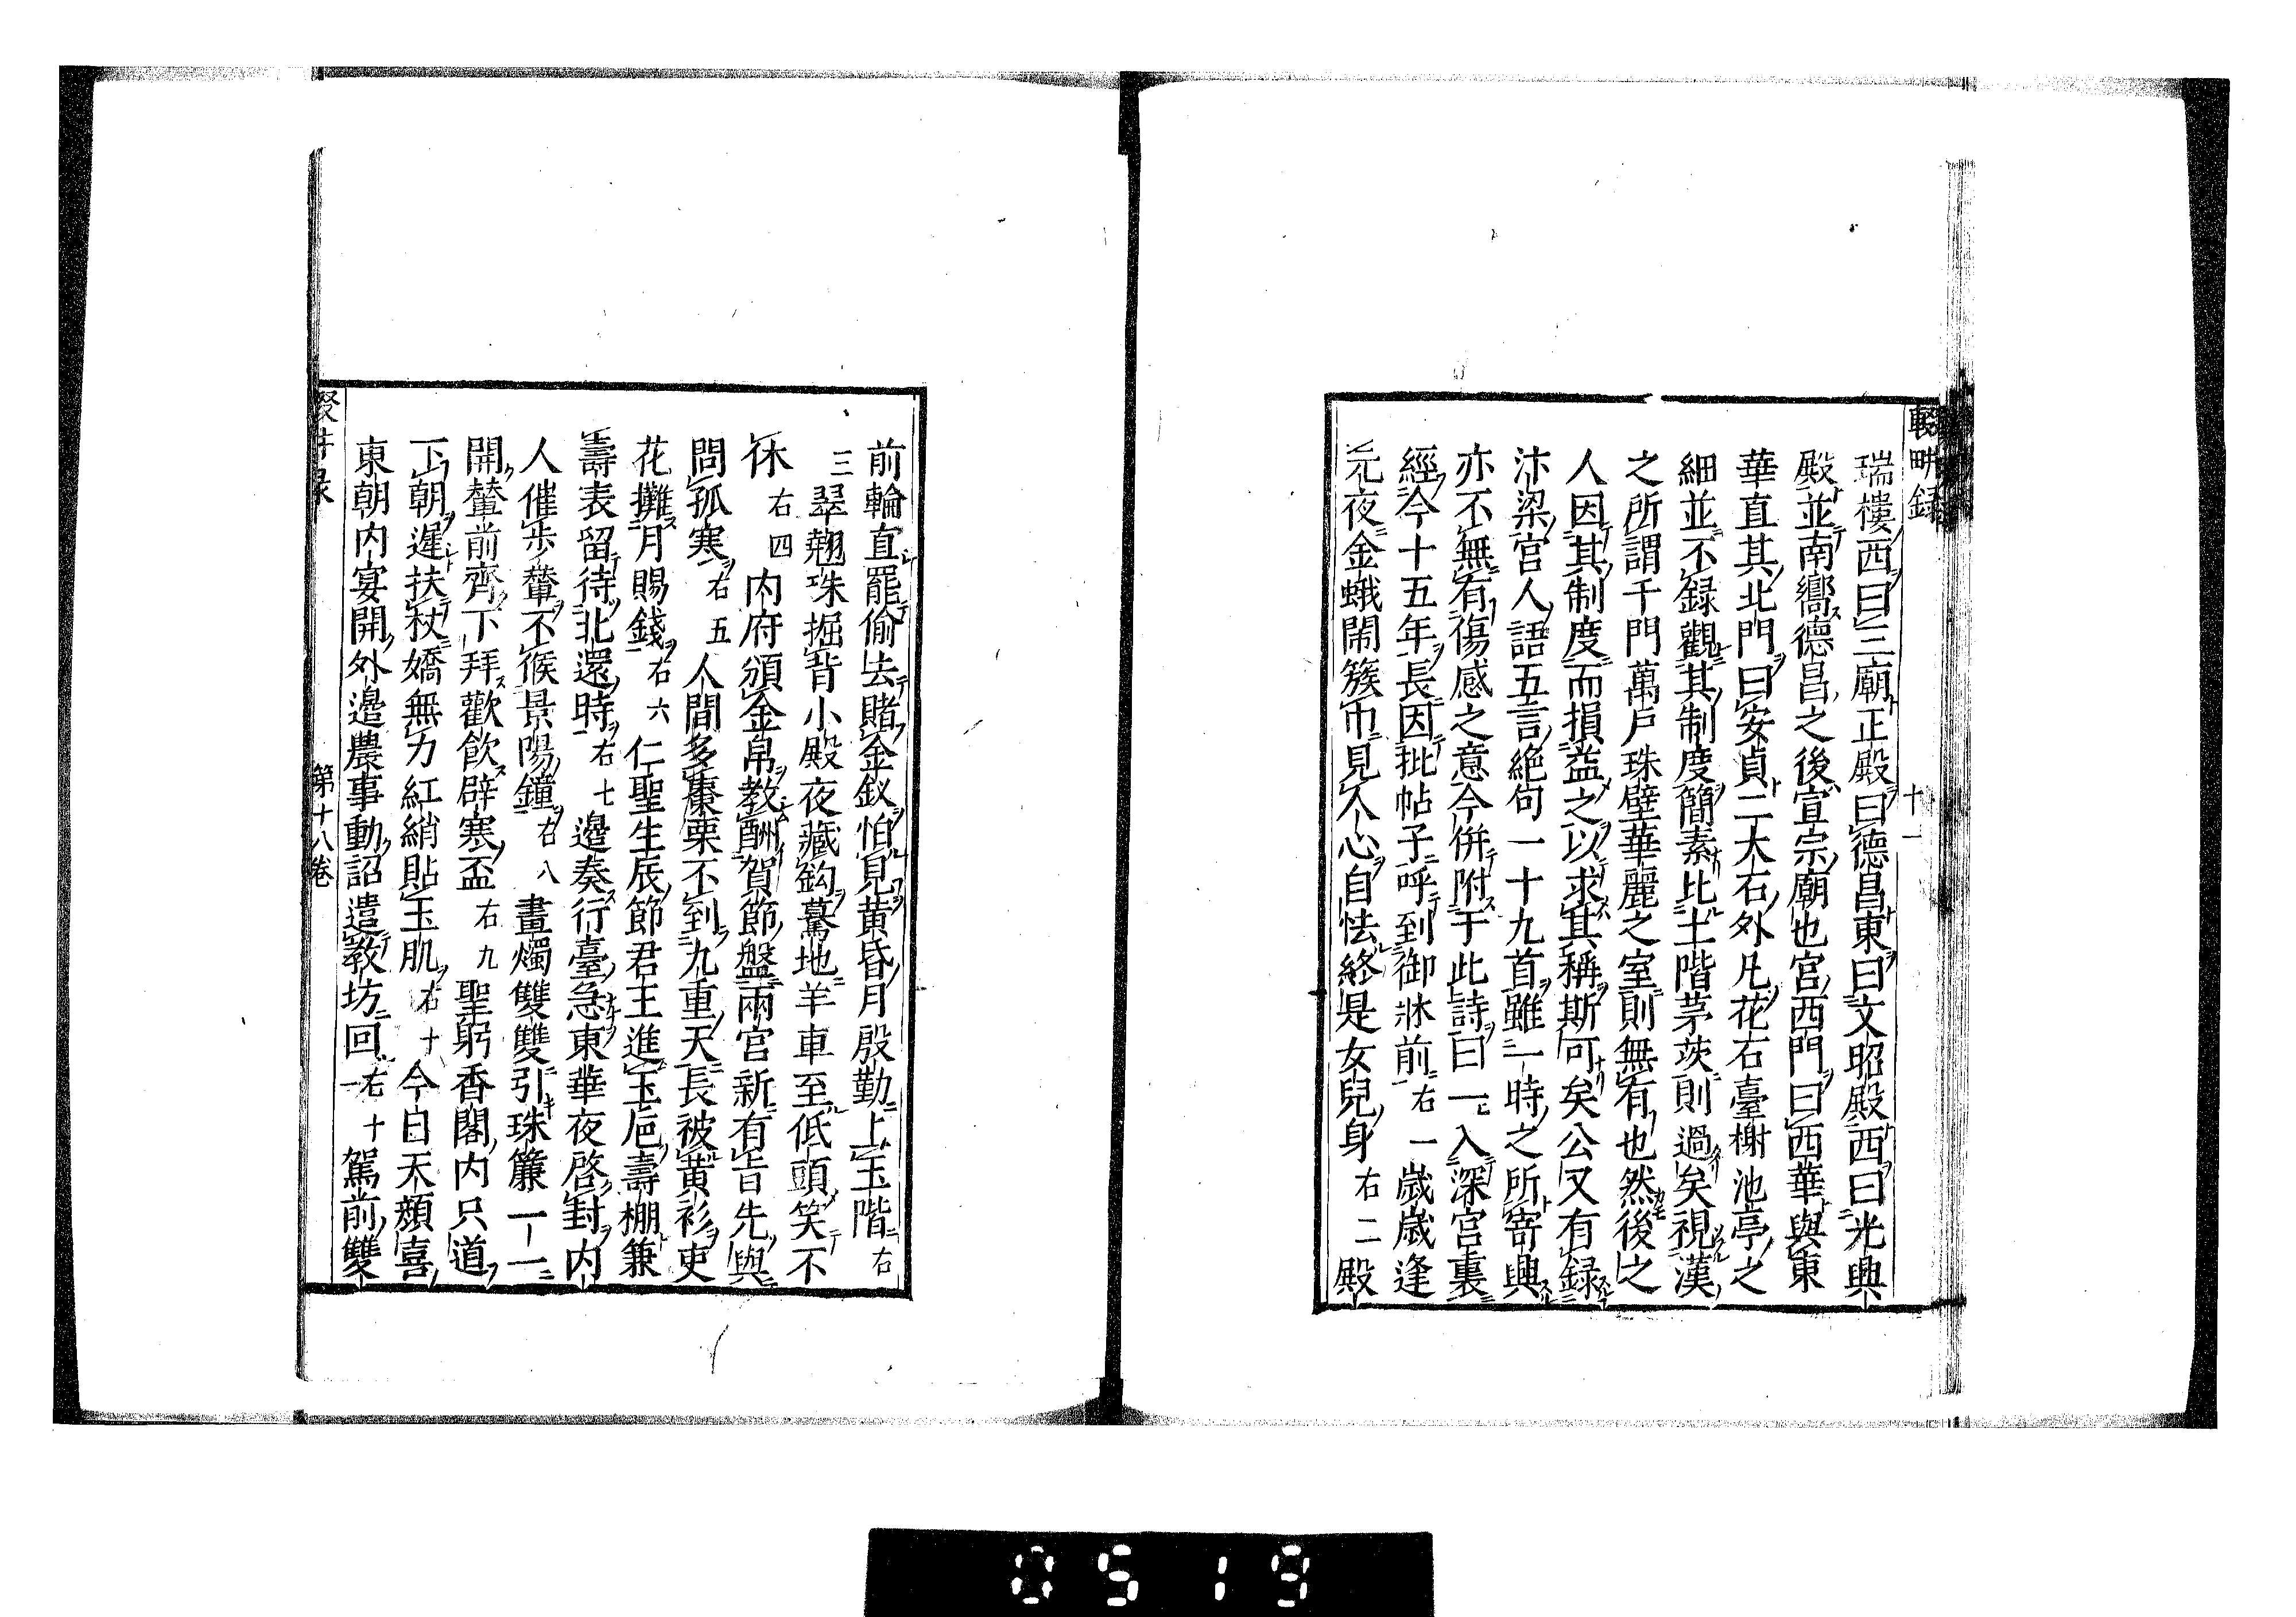 輟畊録
十一
瑞樓西曰三廟正殿曰德昌東曰文昭殿西曰光興
殿並南嚮德昌之後宣宗廟也宮西門曰西華與東
華直其北門曰安貞二大石外凡花石臺榭池亭之
細並不録觀其制度簡素比土階茅茨則過矣視漢
之所謂千門萬戸珠壁華麗之室則無有也然後之
人因其制度而損益之以求其稱斯可矣公又有録
汴梁宮人語五言絶句一十九首雖一時之所寄興
亦不無有傷感之意今併附于此詩曰一入深宮裏
經今十五年長因批帖子呼到御牀前右一歲歲逢
元夜金蛾閙簇巾見人心自怯終是女兒身右二殿
前輪直罷偷去賭金釵怕見黄昏月殷勤上玉階右
三翠翹珠掘背小殿夜藏鈎驀地羊車至低頭笑不
休右四內府頒金帛教酬賀節盤兩宮新有旨先與
問孤寒右五人間多棗栗不到九重天長被黄衫吏
花攤月賜錢右六仁聖生辰節君王進玉巵壽棚兼
壽表留待北還時右七邊奏行臺急東華夜啓封內
人催步輦不候景陽鐘右八畫燭雙雙引珠簾一一
開輦前齊下拜歡飲辟寒盃右九聖躬香閣內只道
下朝遲扶杖嬌無力紅綃貼玉肌右十今日天顏喜
東朝內宴開外邊農事動詔遣教坊回右十一駕前雙
第十八卷